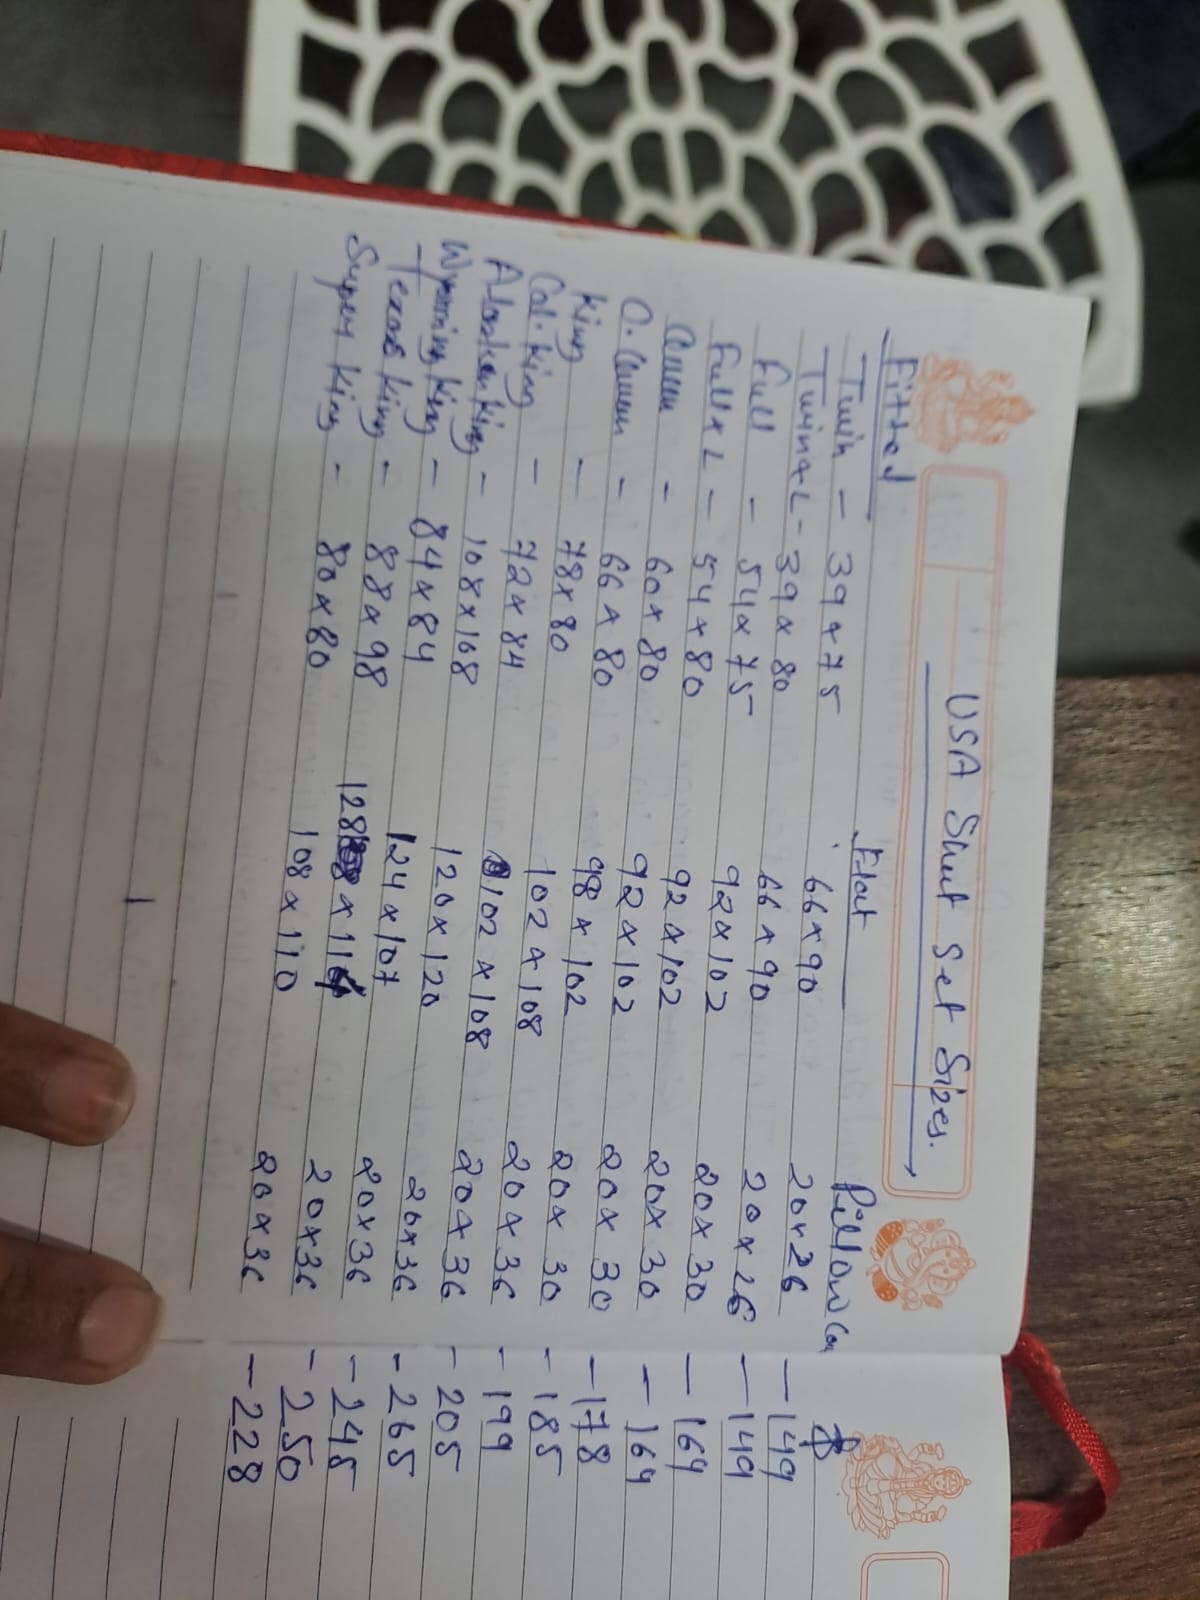 USA Sheet Set Sizes.
Fitted Flat Pillow Cas $
Twin - 39x75 66x90 20x26 - 149
Twin xL - 39x80 66x90 20x26 - 149
Full - 54x75 92x102 20x30 - 169
Full xL - 54x80 92x102 20x30 - 169
Queen - 60x80 92x102 20x30 - 178
O. Queen - 66x80 98x102 20x30 - 185
King - 78x80 102x108 20x36 - 199
Cal. King - 72x84 102x108 20x36 - 205
Alaskan King - 108x108 120x120 20x36 - 265
Wyoming King - 84x84 124x107 20x36 - 245
Texas King - 88x98 128x114 20x36 - 250
Super King - 80x80 108x110 20x36 - 228